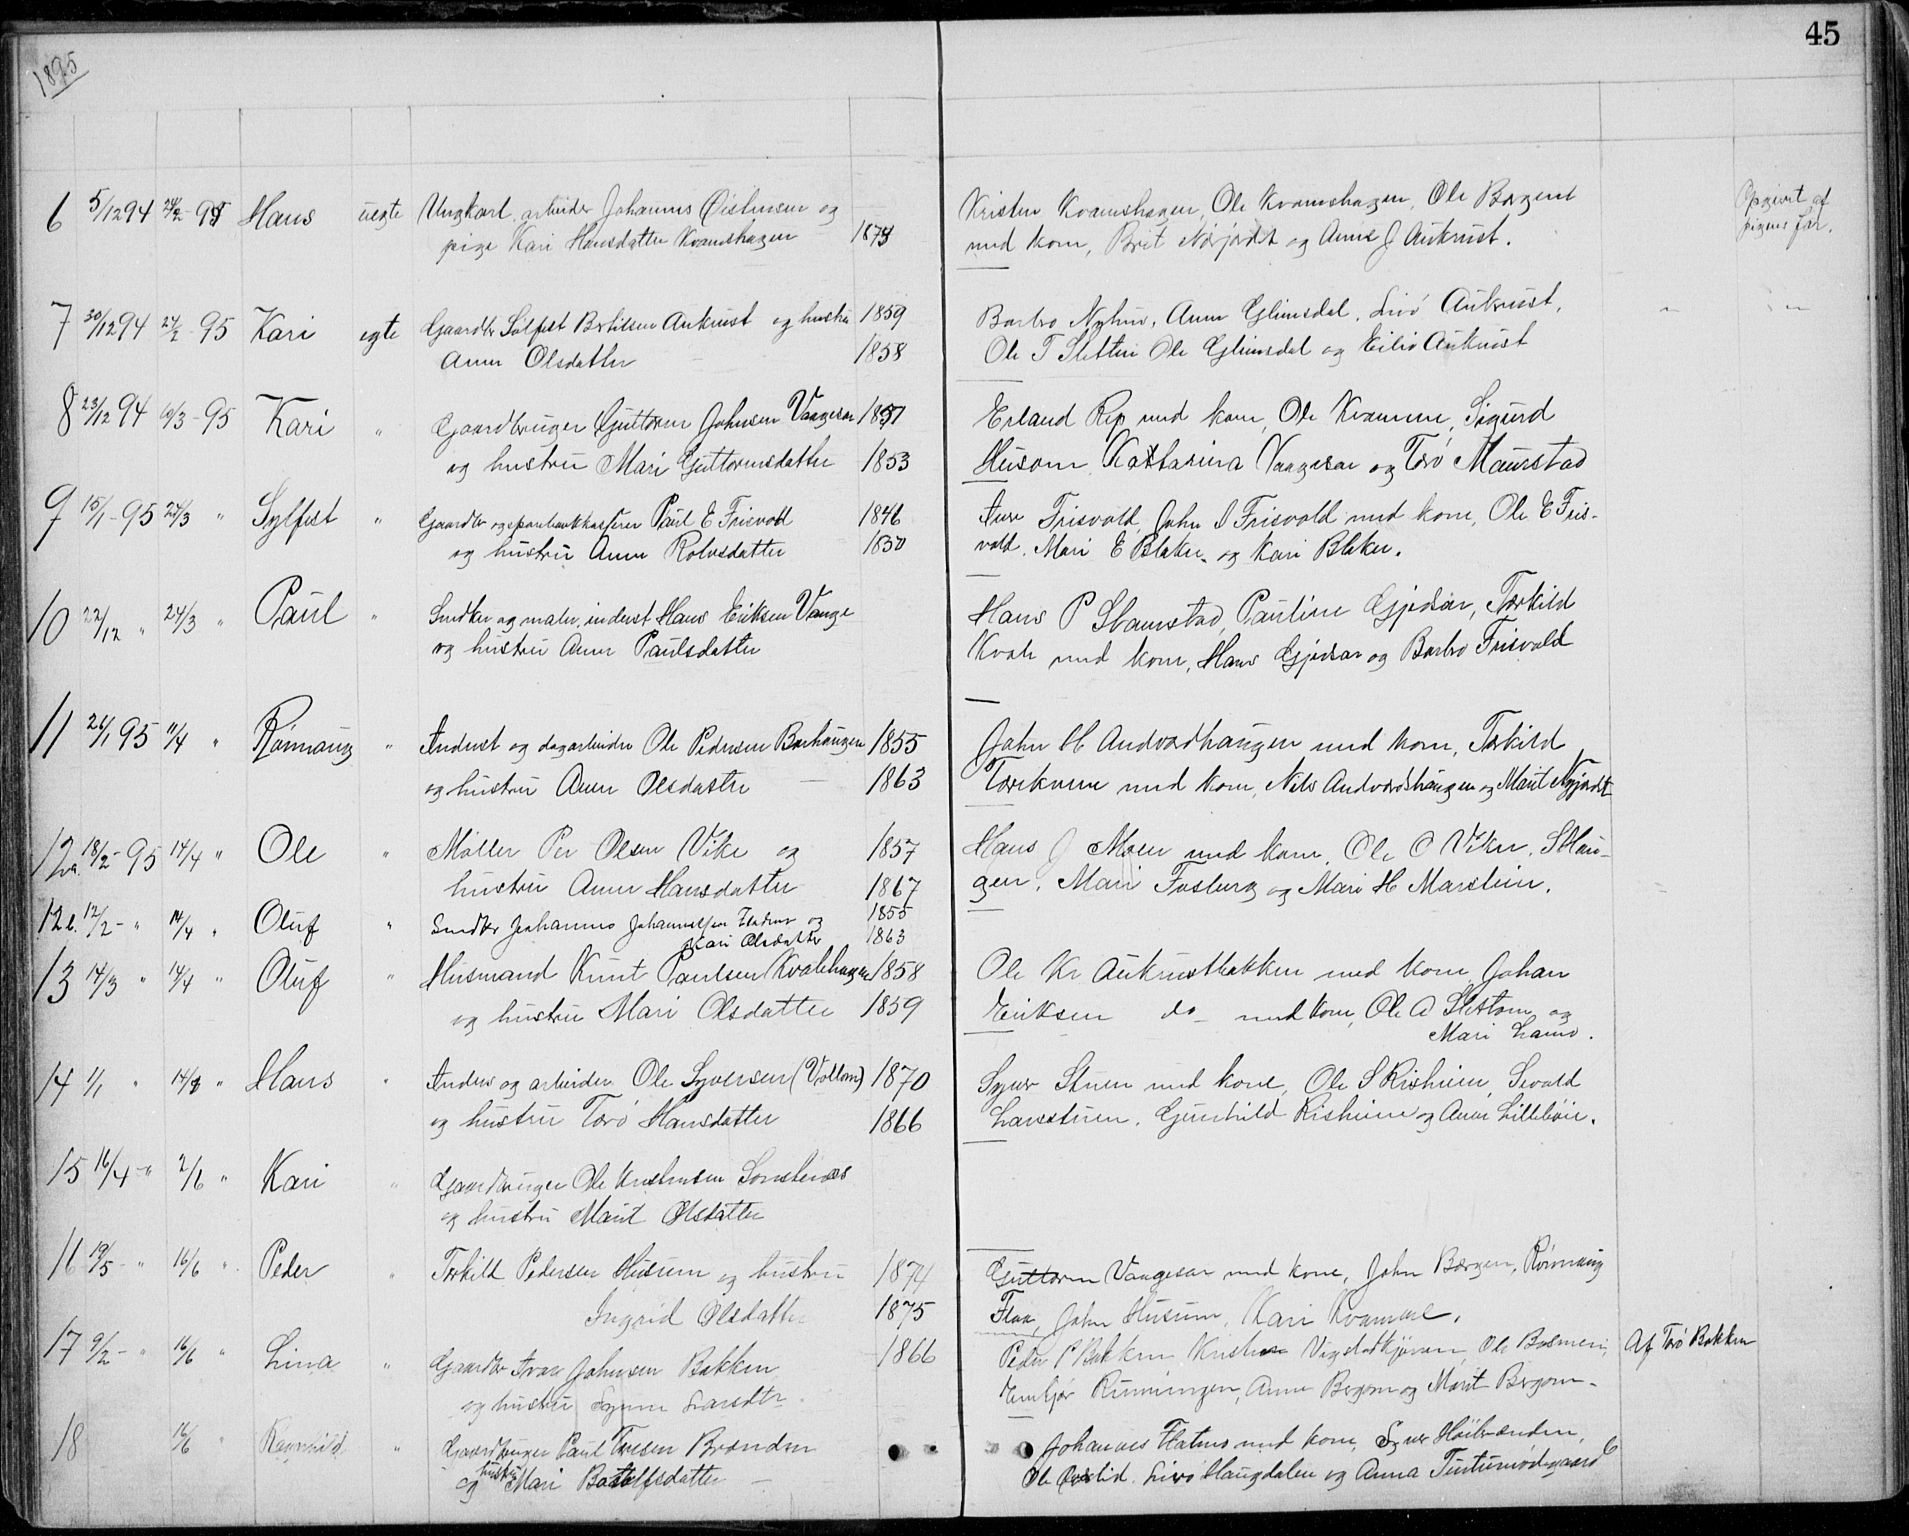 45
1895
6 5/12 94 24/2 - 95 Hans uegte Ungkarl, arbeider Johannes Østensen og Kristen Kvamshagen, Ole Kvamshagen, Ole Børgem Opgivet af
pige Kari Hansdatter Kvamshagen 1874 med kone, Brit Nørjordet og Anne J Aukrust. pigens far.
7 30/12 94 24/2 - 95 Kari egte Gaardbr Sølfest Bertilsen Aukrust og hustru 1859 Barbro Nyhus, Anne Glimsdal, Livø Aukrust, " "
Anne Olsdatter 1858 Ole T Sletten Ole Glimsdal og Eiliv Aukrust
8 23/12 94 10/3 - 95 Kari " Gaardbruger Guttorm Johnsen Vaagesar 1851 Erland Rep med kone, Ole Kvamme, Sigurd
og hustru Mari Guttormsdatter 1853 Husom, Katarina Vaagesar og Torø Maurstad
9 15/1 - 95 24/3 " Sylfest " Gaardbr og sparebankkasserer Paul E Frisvold 1846 Frisvold, John I Frisvold med kone, Ole E Fris-
og hustru Anne Rolvsdatter 1850 vold. Mari E Blaker, og Kari Blaker.
10 22/12 " 24/3 " Paul " Snedker og maler, inderst Hans Eriksen Vange Hans P Stamstad, Pauline Gjedsar, Torkild
og hustru Anne Paulsdatter Kvale med kone, Hans Gjedsar og Barbro Frisvold
11 26/1 95 11/4 " Rønnaug " Inderst og dagarbeider Ole Pedersen Barhaugen 1855 John H Andvordhaugen med kone, Torkild
og hustru Anne Olsdatter 1863 med kone, Nils Andvordshaugen og Marit Nyjordet
12a. 18/2 - 95 14/4 " Ole " Møller Per Olsen Vike og 1857 Hans J Moen med kone, Ole O Viken, S Hau-
hustru Anne Hansdatter 1867 gen, Mari Fosberg og Mari H Marstein.
12b. 12/2 - " 14/4 " Oluf " Snedker Johannes Johannessen og 1855
Kari Olsdatter 1863
13 14/3 " 14/4 " Oluf " Husmand Knut Paulsen Kvalehagen 1858 Ole Kr Aukrustbakken med kone, Johan
og hustru Mari Olsdatter 1859 Eriksen do - med kone, Ole A Slettom og
Mari
14 1/1 " 14/4 " Hans " Inders og arbeider Ole Syversen (Vollom) 1870 Syver Stuen med kone, Ole S Risheim, Sevald
og hustru Torø Hansdatter 1866 Larsstuen, Gunhild Risheim og Anne Lillebøie.
15 16/4 - " 2/6 " Kari " Gaardbruger Ole Kristensen
og hustru Marit Olsdatter
16 19/5 - " 16/6 " Peder " Torkild Pedersen Husum og hustru 1874 Guttorm Vaagesar med kone, John Børgen, Rønnaug
Ingrid Olsdatter 1875 Flaa, John Husum, Kari Kvamme.
17 9/2 - " 16/6 " Lina " Gaardbr Johnsen Bakken 1866 Peder P Bakken Ole Af Torø Bakken
og hustru Synne Larsdtr. Anne Bergom og Marit Bergom -
18 16/6 " Ragnhild " Gaardbruger Paul Iversen Brænden Johannes Flatmo med kone, Syver Høibrænden,
og hustru Mari Botolfsdatter - Ole Øvrelid, Livø Haugdalen og Anna